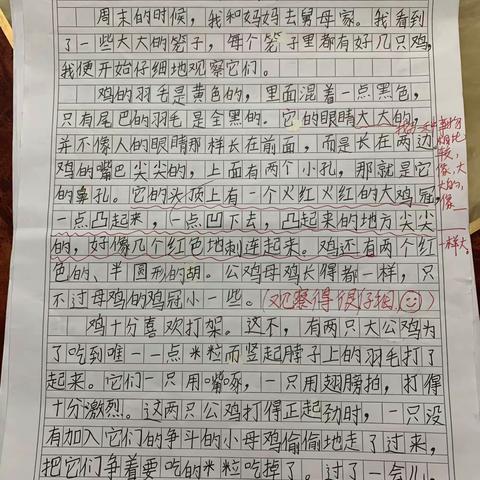 周末的时候，我和妈妈去舅母家。我看到
了一些大大的笼子，每个笼子里都有好几只鸡，
我便开始仔细地观察它们。
鸡的羽毛是黄色的，里面混着一点黑色，
只有尾巴的羽毛是全黑的。它的眼睛大大的，
并不像人的眼睛那样长在前面，而是长在两边
鸡的嘴巴尖尖的，上面有两个小孔，那就是它
的鼻孔。它的头顶上有一个火红火红的大鸡冠，
一点凸起来，一点凹下去，凸起来的地方尖尖
的，好像几个红色地刺连起来。鸡还有两个红
色的、半圆形的胡。公鸡母鸡长得都一样，只
不过母鸡的鸡冠小一些。（观察得很仔细）
鸡十分喜欢打架。这不，有两只大公鸡为
了吃到唯一一点米粒而竖起脖子上的羽毛打了
起来。它们一只用嘴啄，一只用翅膀拍，打得
十分激烈。这两只公鸡打得正起劲时，一只没
有加入它们的争斗的小母鸡偷偷地走了过来，
把它们争着要吃的米粒吃掉了。过了一会儿，
较，
像，大
大的，
像
一样大。